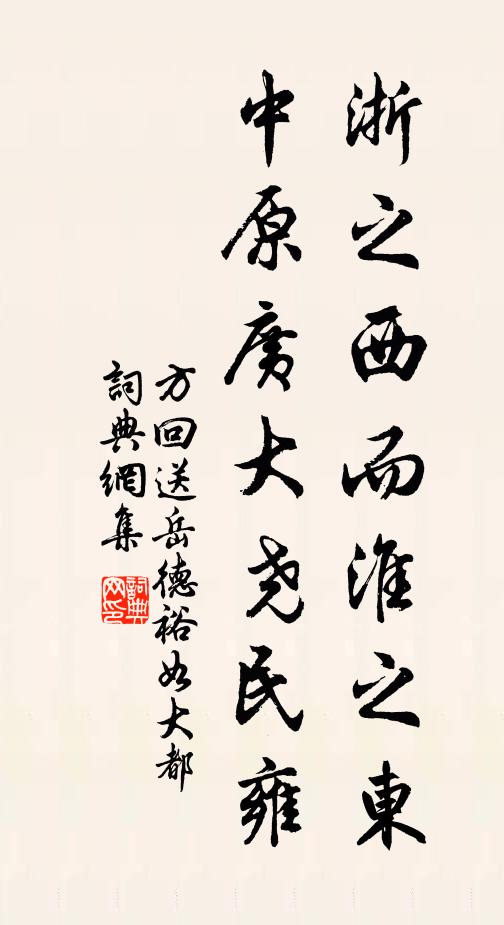 浙之西而淮之東
中原廣大堯民雍
方回送岳德裕如大都
詞典網集
詞典网印